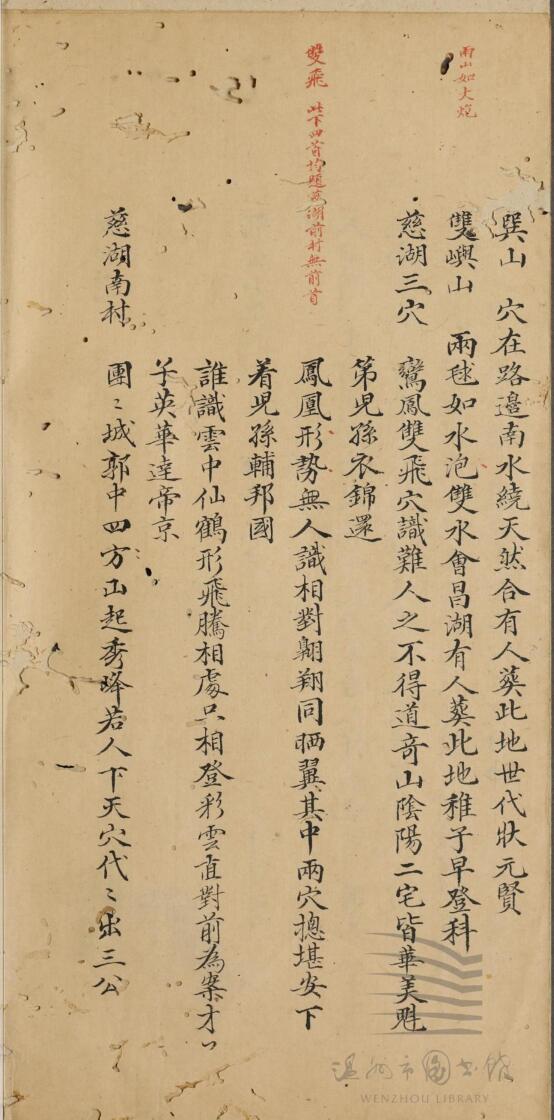 兩山如大炮
巽山　穴在路邊南水繞天然合有人葬此地世代狀元賢
雙嶼山　兩毬如水泡雙水會昌湖有人葬此地稚子早登科
慈湖三穴　鸞鳳雙飛穴識難人之不得道奇山陰陽二宅皆華美魁
第児孫衣錦還
雙飛　此下四首均題慈湖前村無前首
鳳凰形勢無人識相對翺翔同晒翼其中兩穴摠堪安下
着児孫輔邦國
誰識雲中仙鶴形飛騰相處只相登彩雲直對前為案才〻
子英華達帝京
慈湖南村　團〻城郭中四方山起秀峰若人下天穴代〻出三公
溫州市圖書館
WENZHOU LIBRARY